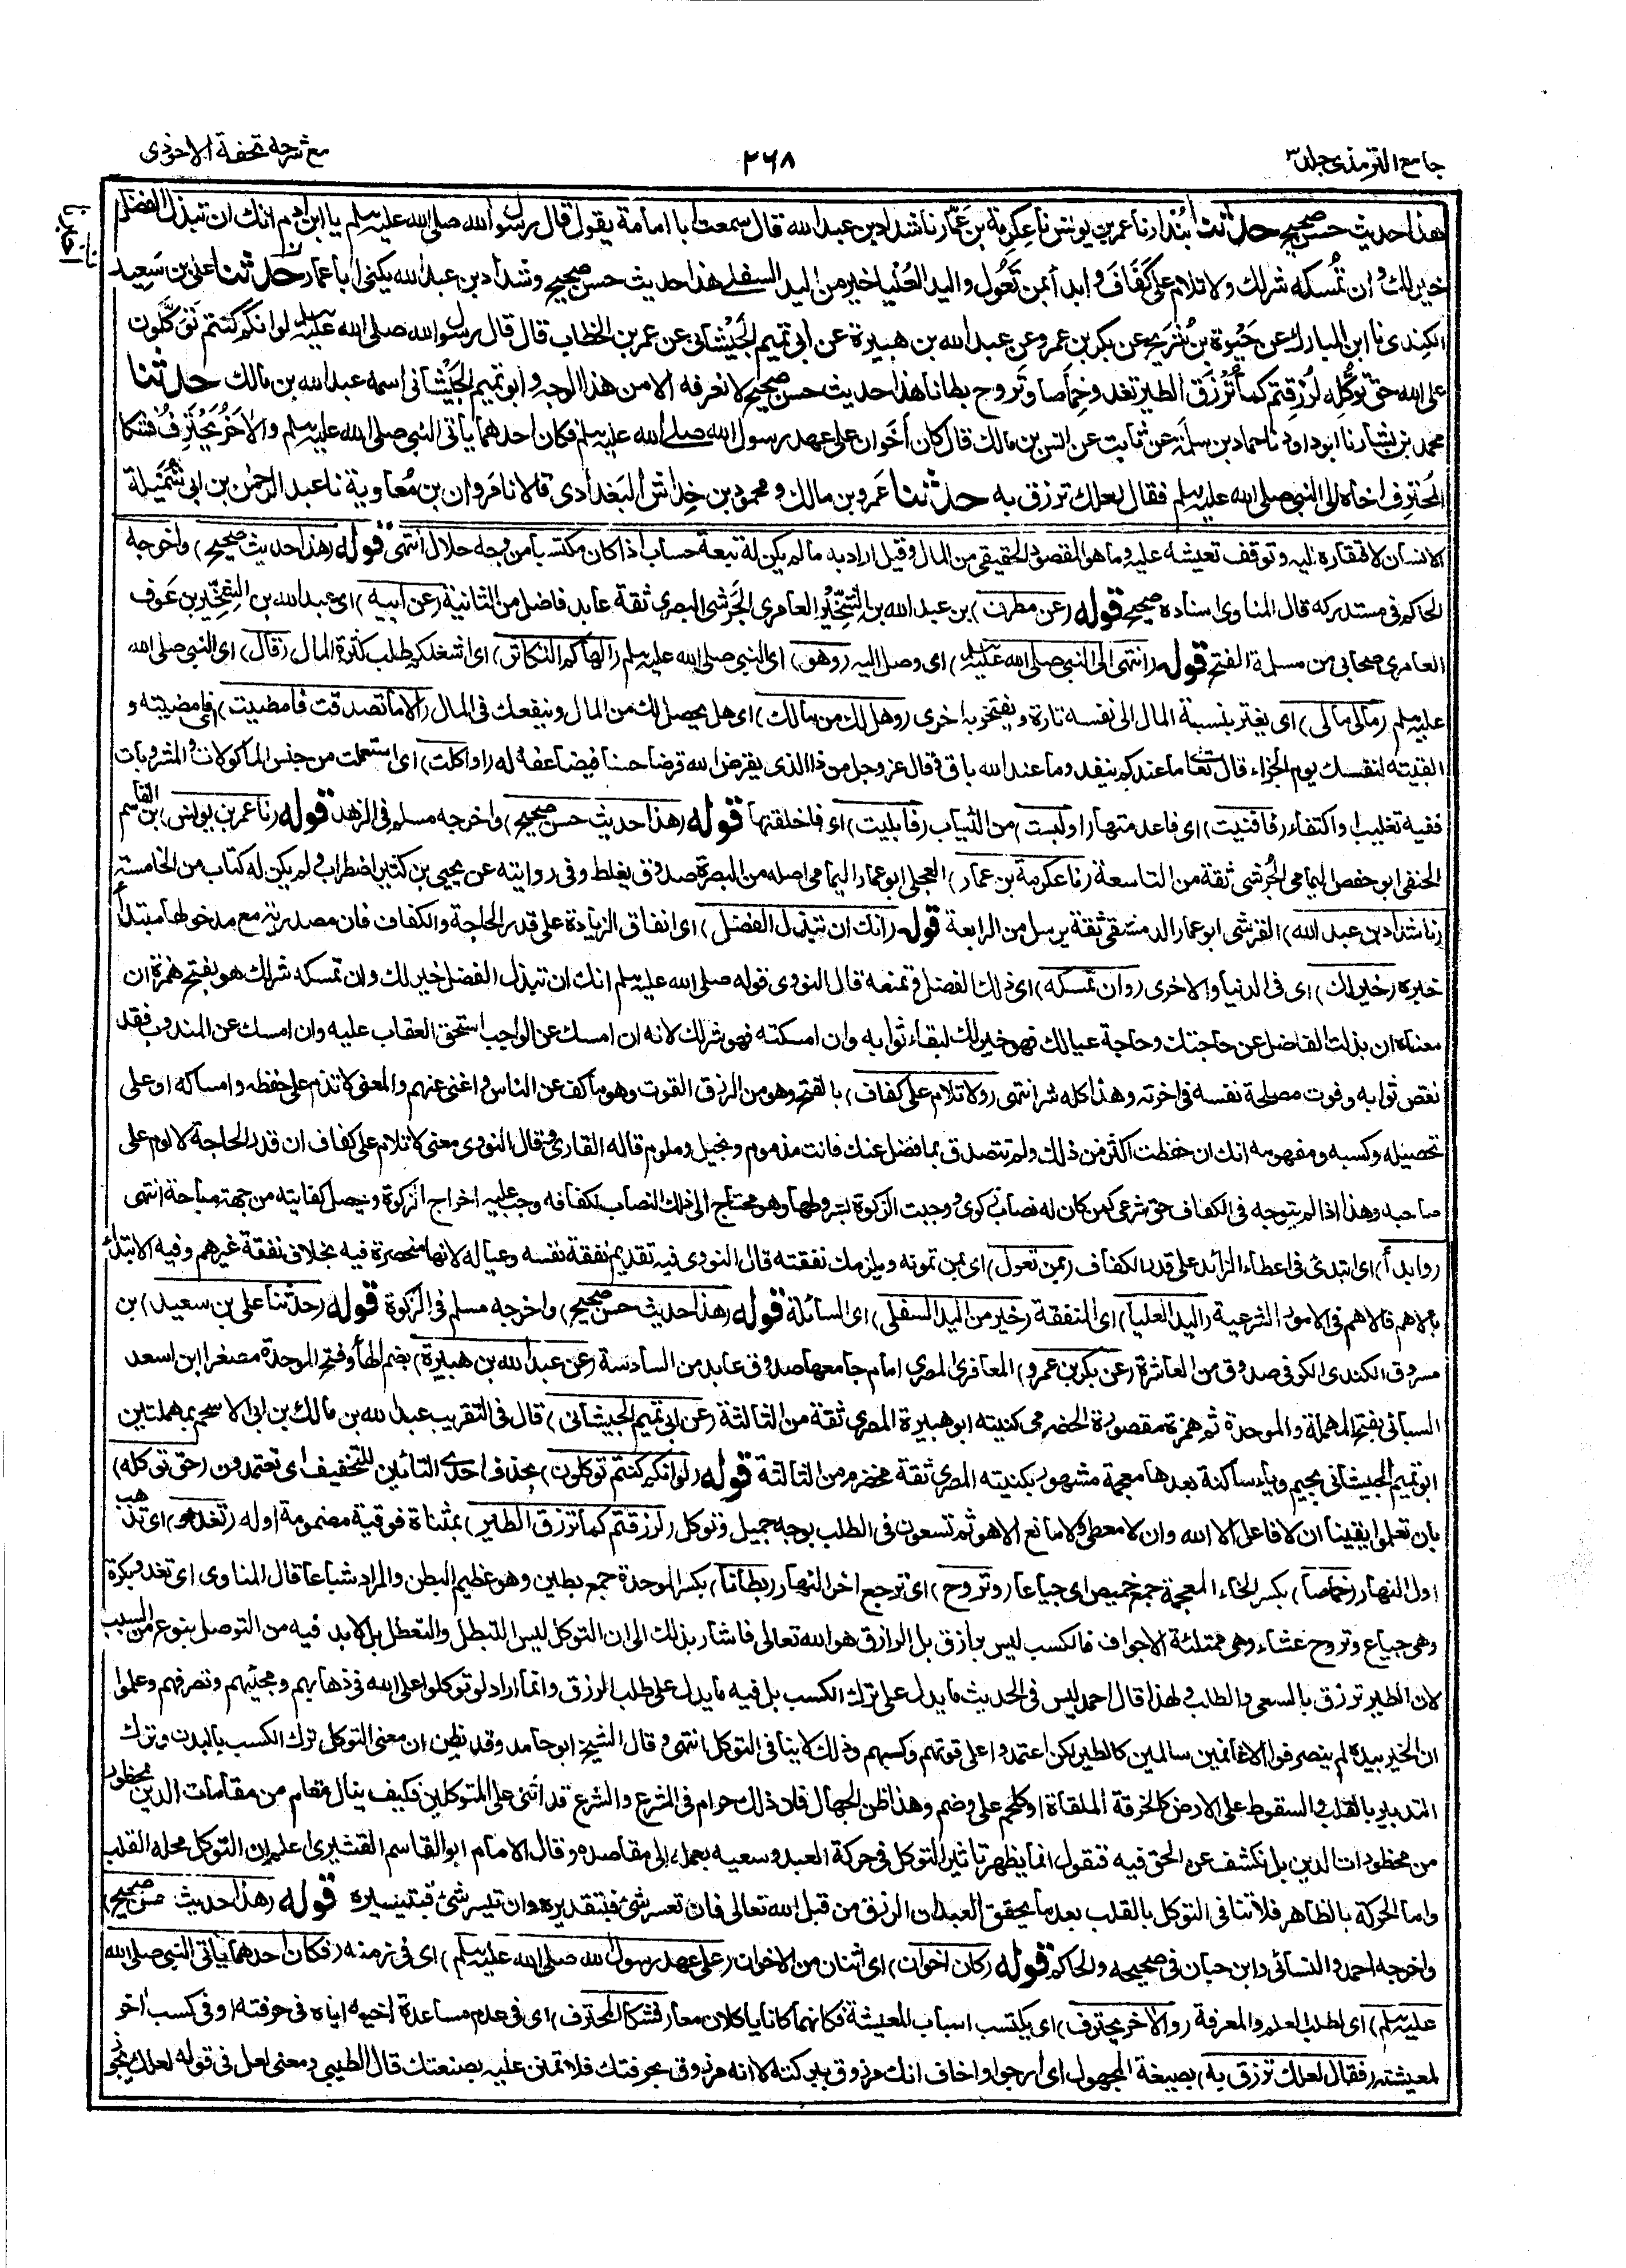 جامع الترمذى جلد ٣
٢٦٨
مع شرحه تحفة الاحوذى
هذا حديث حسن صحيح حدثنا بُندار نا عمر بن يونس نا عِكرمة بن عَمّار نا شداد بن عبد الله قال سمعت ابا امامة يقول قال رسول الله صلى الله عليه وسلم يا ابن ادم انك ان تبذل الفضل
خير لك وان تُمسكه شر لك ولا تلام على كَفَاف وابدأ بمن تَعُول واليد العُليا خير من اليد السفلى هذا حديث حسن صحيح وشداد بن عبد الله يكنى ابا عمار حدثنا على بن سَعيد
الكِندى نا ابن المبارك عن حَيْوة بن شُرَيح عن بكر بن عمرو عن عبد الله بن هبيرة عن ابى تميم الجَيْشانى عن عمر بن الخطاب قال قال رسول الله صلى الله عليه وسلم لو انكم كنتم تَوَكَّلون
على الله حق تَوكُّله لرُزِقتم كما تُرْزَق الطير تغدو خِمَاصا وتَروح بطانا هذا حديث حسن صحيح لا نعرفه الا من هذا الوجه وابو تميم الجَيْشانى اسمه عبد الله بن مالك حدثنا
محمد بن بشار نا ابو داود نا حماد بن سلمة عن ثابت عن انس بن مالك قال كان أَخَوان على عهد رسول الله صلى الله عليه وسلم فكان احدهما يأتى النبى صلى الله عليه وسلم والأخَر يَحْتَرِفُ فشكا
المُحترِف اخاه الى النبى صلى الله عليه وسلم فقال لعلك ترزق به حدثنا عَمرو بن مالك ومحمود بن خِدَاش البَغدادى قالا نا مَروان بن مُعاوية نا عبد الرحمن بن ابى شُمَيلة
الانسان لافتقاره اليه وتوقف تعيشه عليه وما هو المقصود الحقيقى من المال وقيل اراد به ما لم يكن له تبعة حساب اذا كان مكتسبا من وجه حلال انتهى قوله (هذا حديث صحيح) واخرجه
الحاكم فى مستدركه قال المناوى اسناده صحيح قوله (عن مطرف) بن عبد الله بن الشِّخِّير العامرى الحَرَشى البصرى ثقة عابد فاضل من الثانية (عن ابيه) اى عبد الله بن الشِّخِّير بن عَوف
العامرى صحابى من مسلمة الفتح قوله (انتهى الى النبى صلى الله عليه وسلم) اى وصل اليه (وهو) اى النبى صلى الله عليه وسلم (الهاكم التكاثر) اى اشغلكم طلب كثرة المال (قال) اى النبى صلى الله
عليه وسلم (مالى مالى) اى يغتر بنسبة المال الى نفسه تارة ويفتخر به اخرى (وهل لك من مالك) اى هل يحصل لك من المال وينفعك فى المال (الا ما تصدقت فامضيت) اى فامضيته و
ابقيته لنفسك يوم الجزاء قال تعالى ما عندكم ينفد وما عند الله باق وقال عز وجل من ذا الذى يقرض الله قرضا حسنا فيضاعفه له (او اكلت) اى استعملت من جنس الماكولات والمشروبات
ففيه تغليب او اكتفاء (فافنيت) اى فاعدمتها (او لبست) من الثياب (فابليت) اى فاخلقتها قوله (هذا حديث حسن صحيح) واخرجه مسلم فى الزهد قوله (نا عمر بن يونس) بن القاسم
الحنفى ابو حفص اليمامى الجُرشى ثقة من التاسعة (نا عكرمة بن عمار) العجلى ابو عمار اليمامى اصله من البصرة صدوق يغلط وفى روايته عن يحيى بن كثير اضطراب ولم يكن له كتاب من الخامسة
(نا شداد بن عبد الله) القرشى ابو عمار الدمشقى ثقة يرسل من الرابعة قوله (انك ان تبذل الفضل) اى انفاق الزيادة على قدر الحاجة والكفاف فان مصدرية مع مدخولها مبتدأ
خبره (خير لك) اى فى الدنيا والاخرى (وان تمسكه) اى ذلك الفضل وتمنعه قال النووى قوله صلى الله عليه وسلم انك ان تبذل الفضل خير لك وان تمسكه شر لك هو بفتح همزة ان
معناه ان بذلت الفاضل عن حاجتك وحاجة عيالك فهو خير لك لبقاء ثوابه وان امسكته فهو شر لك لانه ان امسك عن الواجب استحق العقاب عليه وان امسك عن المندوب فقد
نقص ثوابه وفوت مصلحة نفسه فى اخرته وهذا كله شر انتهى (ولا تلام على كفاف) بالفتح وهو من الرزق القوت وهو ما كف عن الناس واغنى عنهم والمعنى لا تذم على حفظه وامساكه او على
تحصيله وكسبه ومفهومه انك ان حفظت اكثر من ذلك ولم تتصدق بما فضل عنك فانت مذموم وبخيل وملوم قاله القارى وقال النووى معنى لا تلام على كفاف ان قدر الحاجة لا لوم على
صاحبه وهذا اذا لم يتوجه فى الكفاف حق شرعى كمن كان له نصاب زكوى ووجبت الزكوة بشروطها وهو محتاج الى ذلك النصاب لكفافه وجب عليه اخراج الزكوة ويحصل كفايته من جهة مباحة انتهى
(وابدأ) اى ابتدئ فى اعطاء الزائد على قدر الكفاف (بمن تعول) اى بمن تمونه ويلزمك نفقته قال النووى فيه تقديم نفقة نفسه وعياله لانها منحصرة فيه بخلاف نفقة غيرهم وفيه الابتداء
بالاهم فالاهم فى الامور الشرعية (واليد العليا) اى المنفقة (خير من اليد السفلى) اى السائلة قوله (هذا حديث حسن صحيح) واخرجه مسلم فى الزكوة قوله (حدثنا على بن سعيد) بن
مسروق الكندى الكوفى صدوق من العاشرة (عن بكر بن عمرو) المعافرى المصرى امام جامعها صدوق عابد من السادسة (عن عبد الله بن هبيرة) بضم الهاء وفتح الموحدة مصغرا ابن اسعد
السبائى بفتح المهملة والموحدة ثم همزة مقصورة الحضرمى كنيته ابو هبيرة المصرى ثقة من الثالثة (عن ابى تميم الجيشانى) قال فى التقريب عبد الله بن مالك بن ابى الاسحم بمهملتين
ابو تميم الجيشانى بجيم وياء ساكنة بعدها معجمة مشهور بكنيته المصرى ثقة مخضرم من الثانية قوله (لو انكم كنتم توكلون) بحذف احدى التائين للتخفيف اى تعتمدون (حق توكله)
بان تعلموا يقينا ان لا فاعل الا الله وان لا معطى ولا مانع الا هو ثم تسعون فى الطلب بوجه جميل وتوكل (لرزقتم كما ترزق الطير) بمثناة فوقية مضمومة اوله (تغدو) اى تذهب
اول النهار (خماصا) بكسر الخاء المعجمة جمع خميص اى جياعا (وتروح) اى ترجع اخر النهار (بطانا) بكسر الموحدة جمع بطين وهو عظيم البطن والمراد شباعا قال المناوى اى تغدو بكرة
وهى جياع وتروح عشاء وهى ممتلئة الاجواف فالكسب ليس برازق بل الرازق هو الله تعالى فاشار بذلك الى ان التوكل ليس التبطل والتعطل بل لا بد فيه من التوصل بنوع من السبب
لان الطير ترزق بالسعى والطلب ولهذا قال احمد ليس فى الحديث ما يدل على ترك الكسب بل فيه ما يدل على طلب الرزق وانما اراد لو توكلوا على الله فى ذهابهم ومجيئهم وتصرفهم وعلموا
ان الخير بيده لم ينصرفوا الا غانمين سالمين كالطير لكن اعتمدوا على قوتهم وكسبهم وذلك لا ينافى التوكل انتهى وقال الشيخ ابو حامد وقد يظن ان معنى التوكل ترك الكسب بالبدن وترك
التدبير بالقلب والسقوط على الارض كالخرقة الملقاة او كلحم على وضم وهذا ظن الجهال فان ذلك حرام فى الشرع والشرع قد اثنى على المتوكلين فكيف ينال مقام من مقامات الدين محظور
من محظورات الدين بل نكشف عن الحق فيه فنقول انما يظهر تاثير التوكل فى حركة العبد وسعيه بعمله الى مقاصده وقال الامام ابو القاسم القشيرى اعلم ان التوكل محله القلب
واما الحركة بالظاهر فلا تنافى التوكل بالقلب بعد ما يحقق العبد ان الرزق من قبل الله تعالى فان تعسر شئ فبتقديره وان تيسر شئ فبتيسيره قوله (هذا حديث حسن صحيح)
واخرجه احمد والنسائى وابن حبان فى صحيحه والحاكم قوله (كان اخوان) اى اثنان من الاخوان (على عهد رسول الله صلى الله عليه وسلم) اى فى زمنه (فكان احدهما ياتى النبى صلى الله
عليه وسلم) اى لطلب العلم والمعرفة (والاخر يحترف) اى يكتسب اسباب المعيشة فكانهما كانا ياكلان معا (فشكا المحترف) اى فى عدم مساعدة اخيه اياه فى حرفته او فى كسب اخر
لمعيشته (فقال لعلك ترزق به) بصيغة المجهول اى ارجو او اخاف انك مرزوق ببركته لا انه مرزوق بحرفتك فلا تمنن عليه بصنعتك قال الطيبى ومعنى لعل فى قوله لعلك يجوز